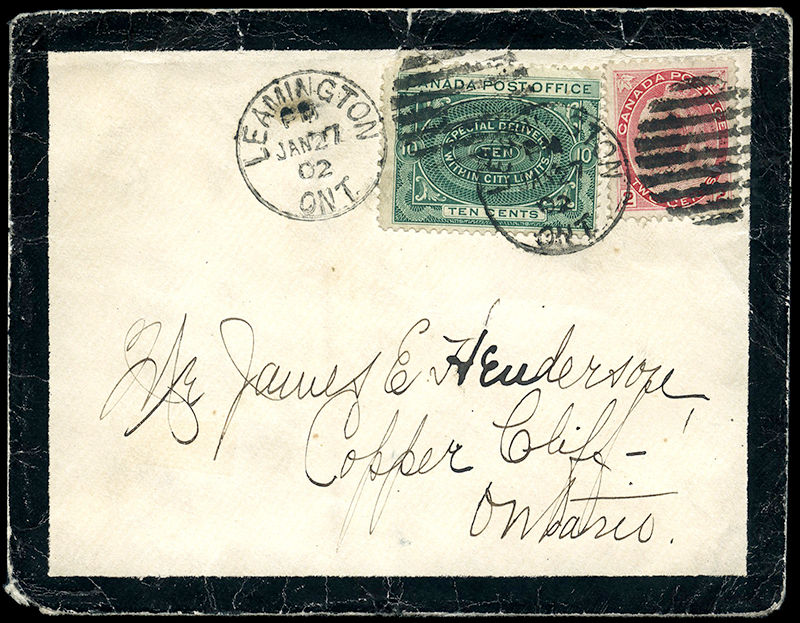 LEAMINGTON
PM
JAN 27
02
ONT.
CANADA POST OFFICE
SPECIAL DELIVERY
TEN
WITHIN CITY LIMITS
10 10
TEN CENTS
CANADA POSTAGE
TWO CENTS
2
TON
02
ONT
Mr James E. Henderson
Copper Cliff -
Ontario.